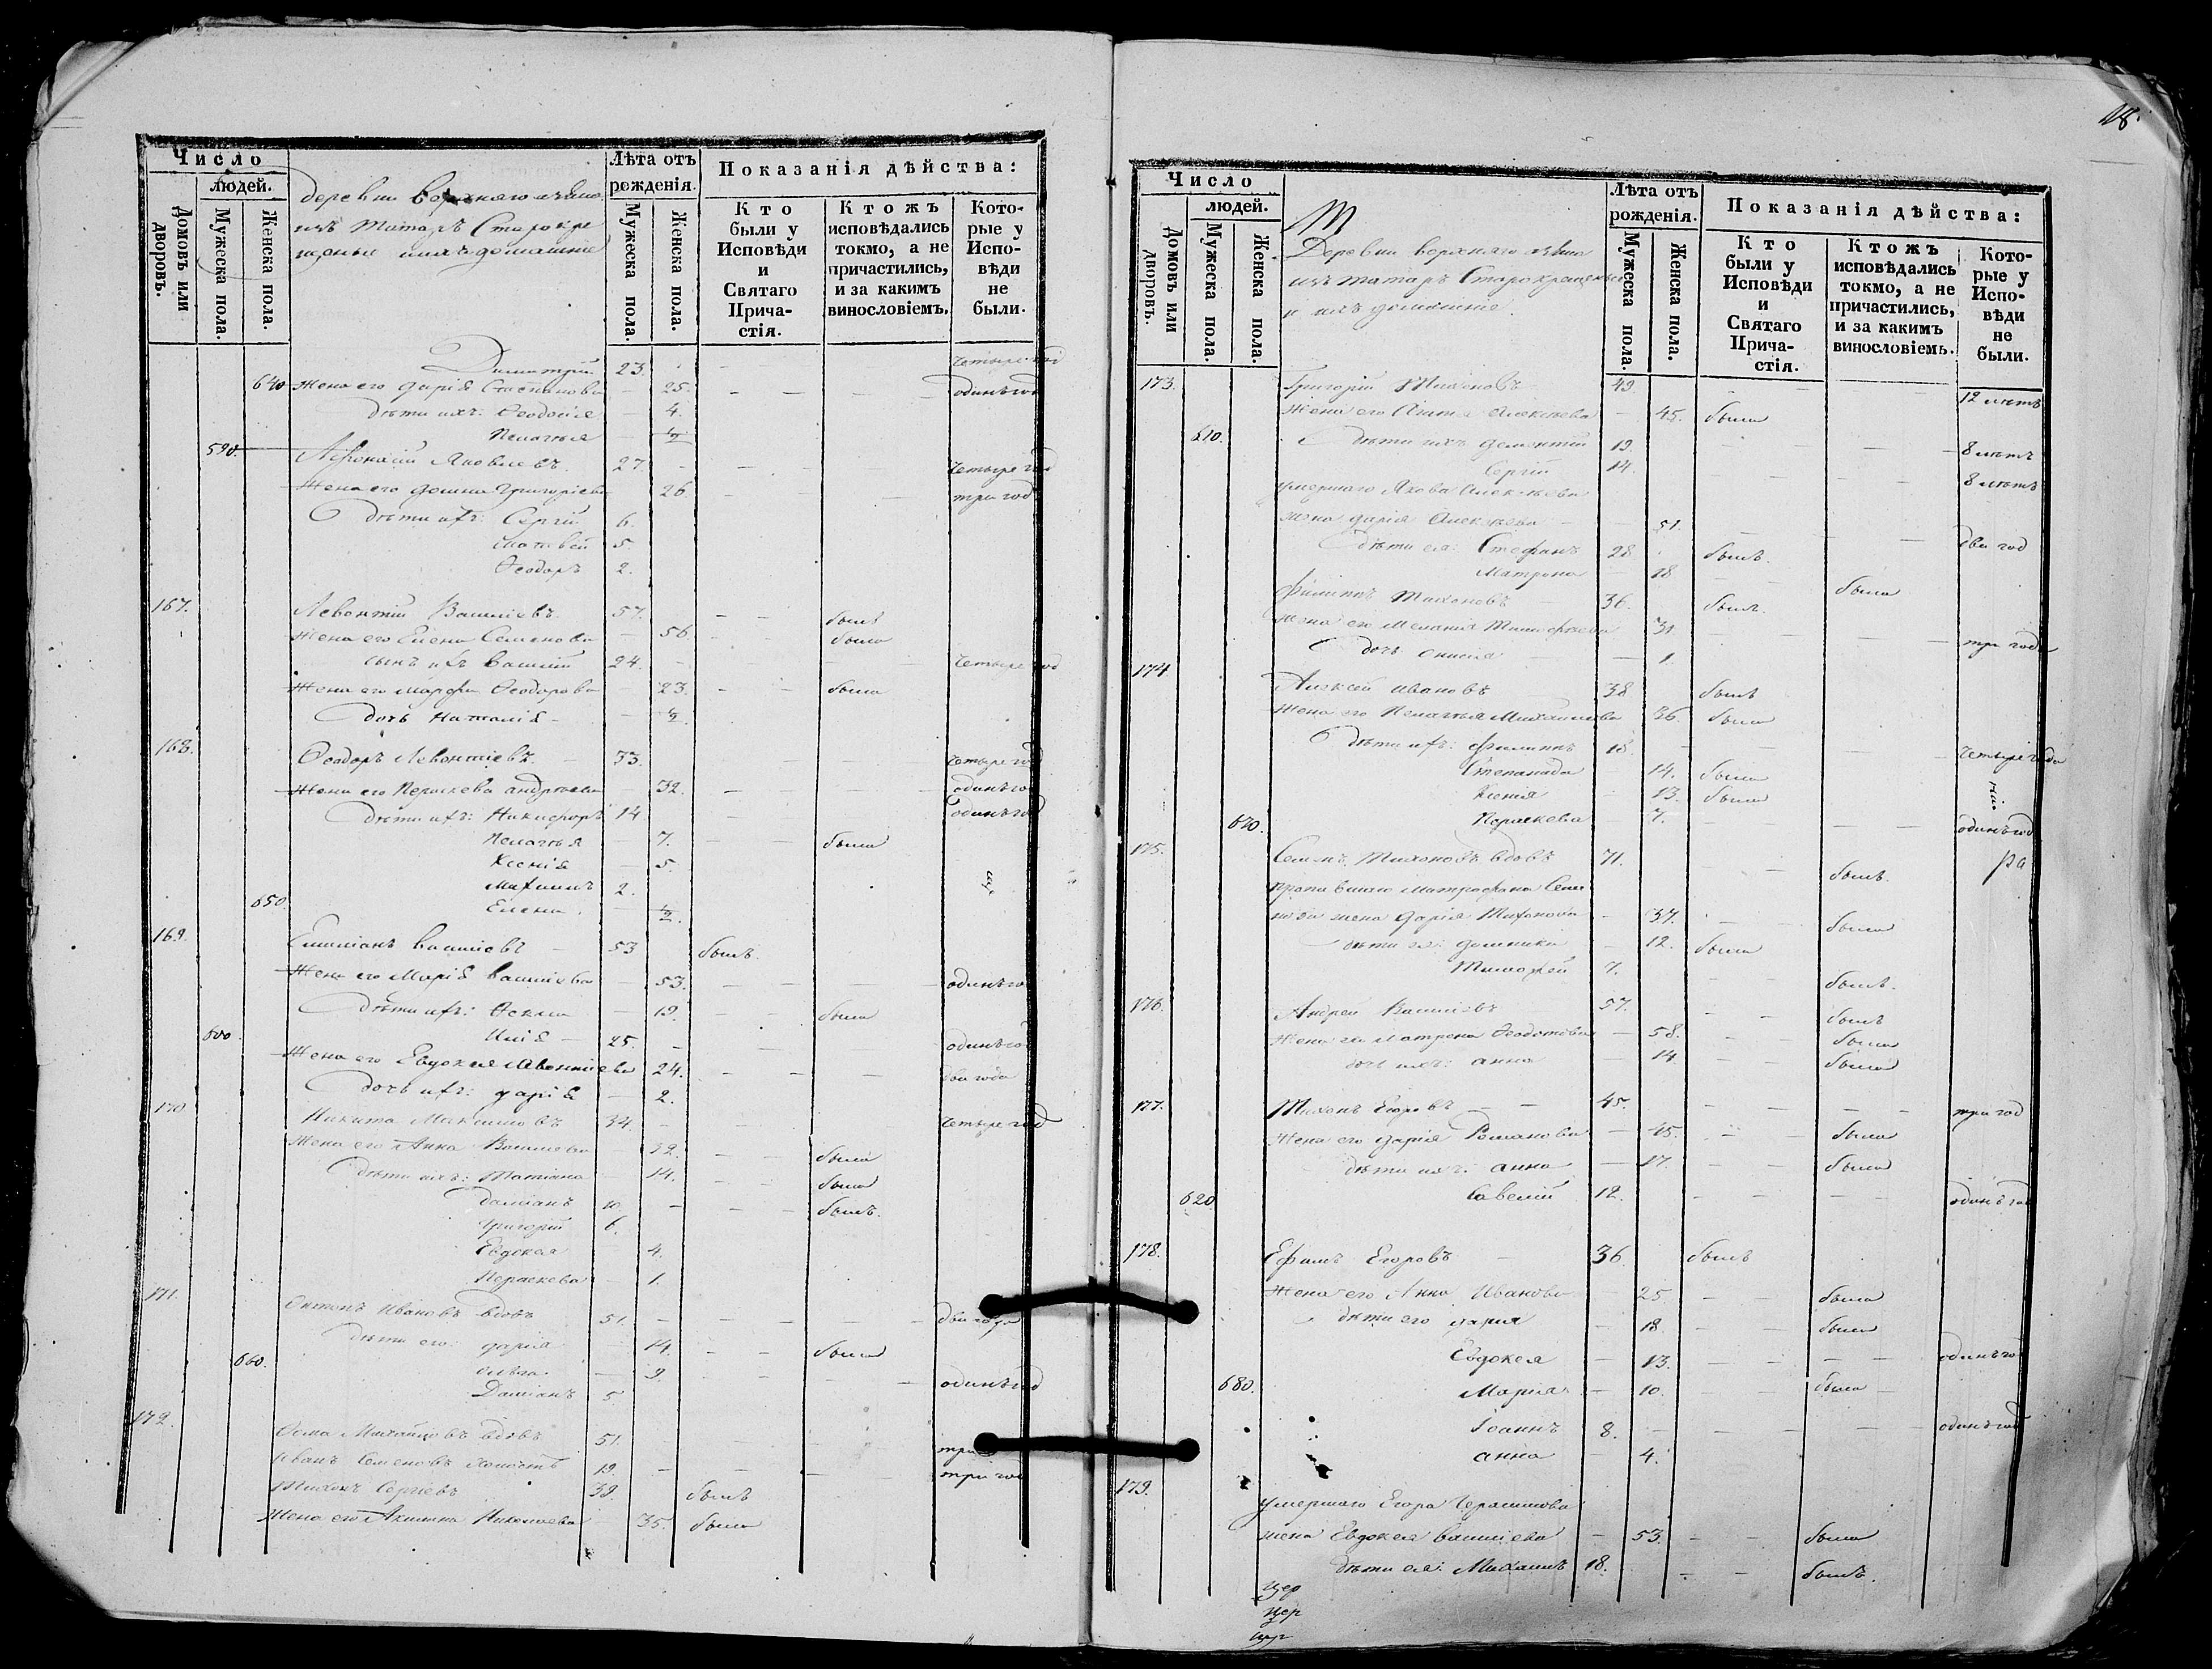 Число
людей.
Домовъ или дворовъ.
Мужеска пола.
Женска пола.
деревни верхняго
изъ татаръ Старокре
щеные и ихъ домашние
Лѣта отъ рожденія.
Мужеска пола.
Женска пола.
Показанія дѣйства:
Кто были у Исповѣди и Святаго Причастія.
Ктожъ исповѣдались токмо, а не причастились, и за какимъ винословіемъ.
Которые у Исповѣди не были.
Димитрій 23. четыре год
640 Жена его Дарія Степанова 25. одинъ год
дѣти ихъ: Ѳеодосія 4.
Пелагѣя ½
590. Афонасій Яковлевъ 27. четыре год
Жена его Григоріева 26. три год
дѣти ихъ: Сергій 6.
Матвей 5.
Ѳеодоръ 2.
167. Левонтій Василіевъ 57. былъ
Жена его Елена Семенова 56 была
сынъ ихъ Василій 24. четыре год
Жена его Марфа Ѳеодорова 23. была
дочь Наталія ½
168. Ѳеодоръ Левонтіевъ 33. четыре год
Жена его Параскева Андреева 32. одинъ го
дѣти ихъ: Никифоръ 14. одинъ год
Пелагѣя 7. была
Ксенія 5.
Махіинъ 2.
650. Елена ½
169. Емиліанъ Василіевъ 53 былъ.
Жена его Марія Василіева 53. одинъ го
дѣти ихъ: Ѳекла 19. была
600 Илія 25. одинъ год
Жена его Евдокея Левонтіева 24. два года
дочь ихъ: Дарія 2.
170 Никита Максимовъ 34. четыре год
Жена его Анна Василіева 32. была
дѣти ихъ: Татіана 14. была
Даміанъ 10. былъ.
Григорій 6.
Евдокея 4.
Параскева 1.
171. Антонъ Ивановъ вдовъ 51. два года
дѣти его: Дарія 14. была
660. Ольга 9. одинъ год
Даміанъ 5
172. Ѳома Михайловъ вдовъ 51. три
Иванъ Семеновъ холостъ 19. три год
Тихонъ Сергіевъ 39. былъ
Жена его Акилина Николаева 35. была
Число
людей.
Домовъ или дворовъ.
Мужеска пола.
Женска пола.
Деревни верхняго
изъ татаръ Старокрещеные
и ихъ домашние.
Лѣта отъ рожденія.
Мужеска пола.
Женска пола.
Показанія дѣйства:
Кто были у Исповѣди и Святаго Причастія.
Ктожъ исповѣдались токмо, а не причастились, и за какимъ винословіемъ.
Которые у Исповѣди не были.
173. Григорій Тихоновъ 49. 12 лѣтъ
Жена его Алексѣева 45. была
610. дѣти ихъ: Дементій 19. 8 лѣтъ
Сергій 14. 8 лѣтъ
умершаго Якова Алексѣева
жена Дарія Алексѣева 51. два год
дѣти ея: Стефанъ 28 былъ.
Матрона 18 была
Филиппъ Тихоновъ 36. былъ.
Жена его Меланія Тимофѣева 31. три года
дочь 1.
174 Алексѣй Ивановъ 38 былъ
Жена его Пелагѣя Михайлова 36. была
дѣти ихъ: Филиппъ 18. четыре года
Степанида 14. была
Ксенія 13. была
670. Параскева 7. одинъ год
175. Семенъ Тихоновъ вдовъ 71. былъ.
пропавшаго Митрофана Семе
нова жена Дарія Тихонова 37. была
дѣти ея: Домника 12. была
Тимофей 7. былъ.
176. Андрей Василіевъ 57. былъ
Жена его Матрона Ѳеодотова 58. была
дочь ихъ: Анна 14 была
177. Тихонъ Егоровъ 45. три год
Жена его Дарія Романова 45. была
дѣти ихъ: Анна 17. была
620 Савелій 12. одинъ год
178. Ефимъ Егоровъ 36 былъ
Жена его Анна Иванова 25 была
дѣти его Дарія 18 была
Евдокея 13. одинъ го
680. Марія 10. была
Іоаннъ 8. одинъ год
Анна 4.
179. умершаго Егора Герасимова
жена Евдокея Василіева 53. была
дѣти ея: Михаилъ 18. былъ.